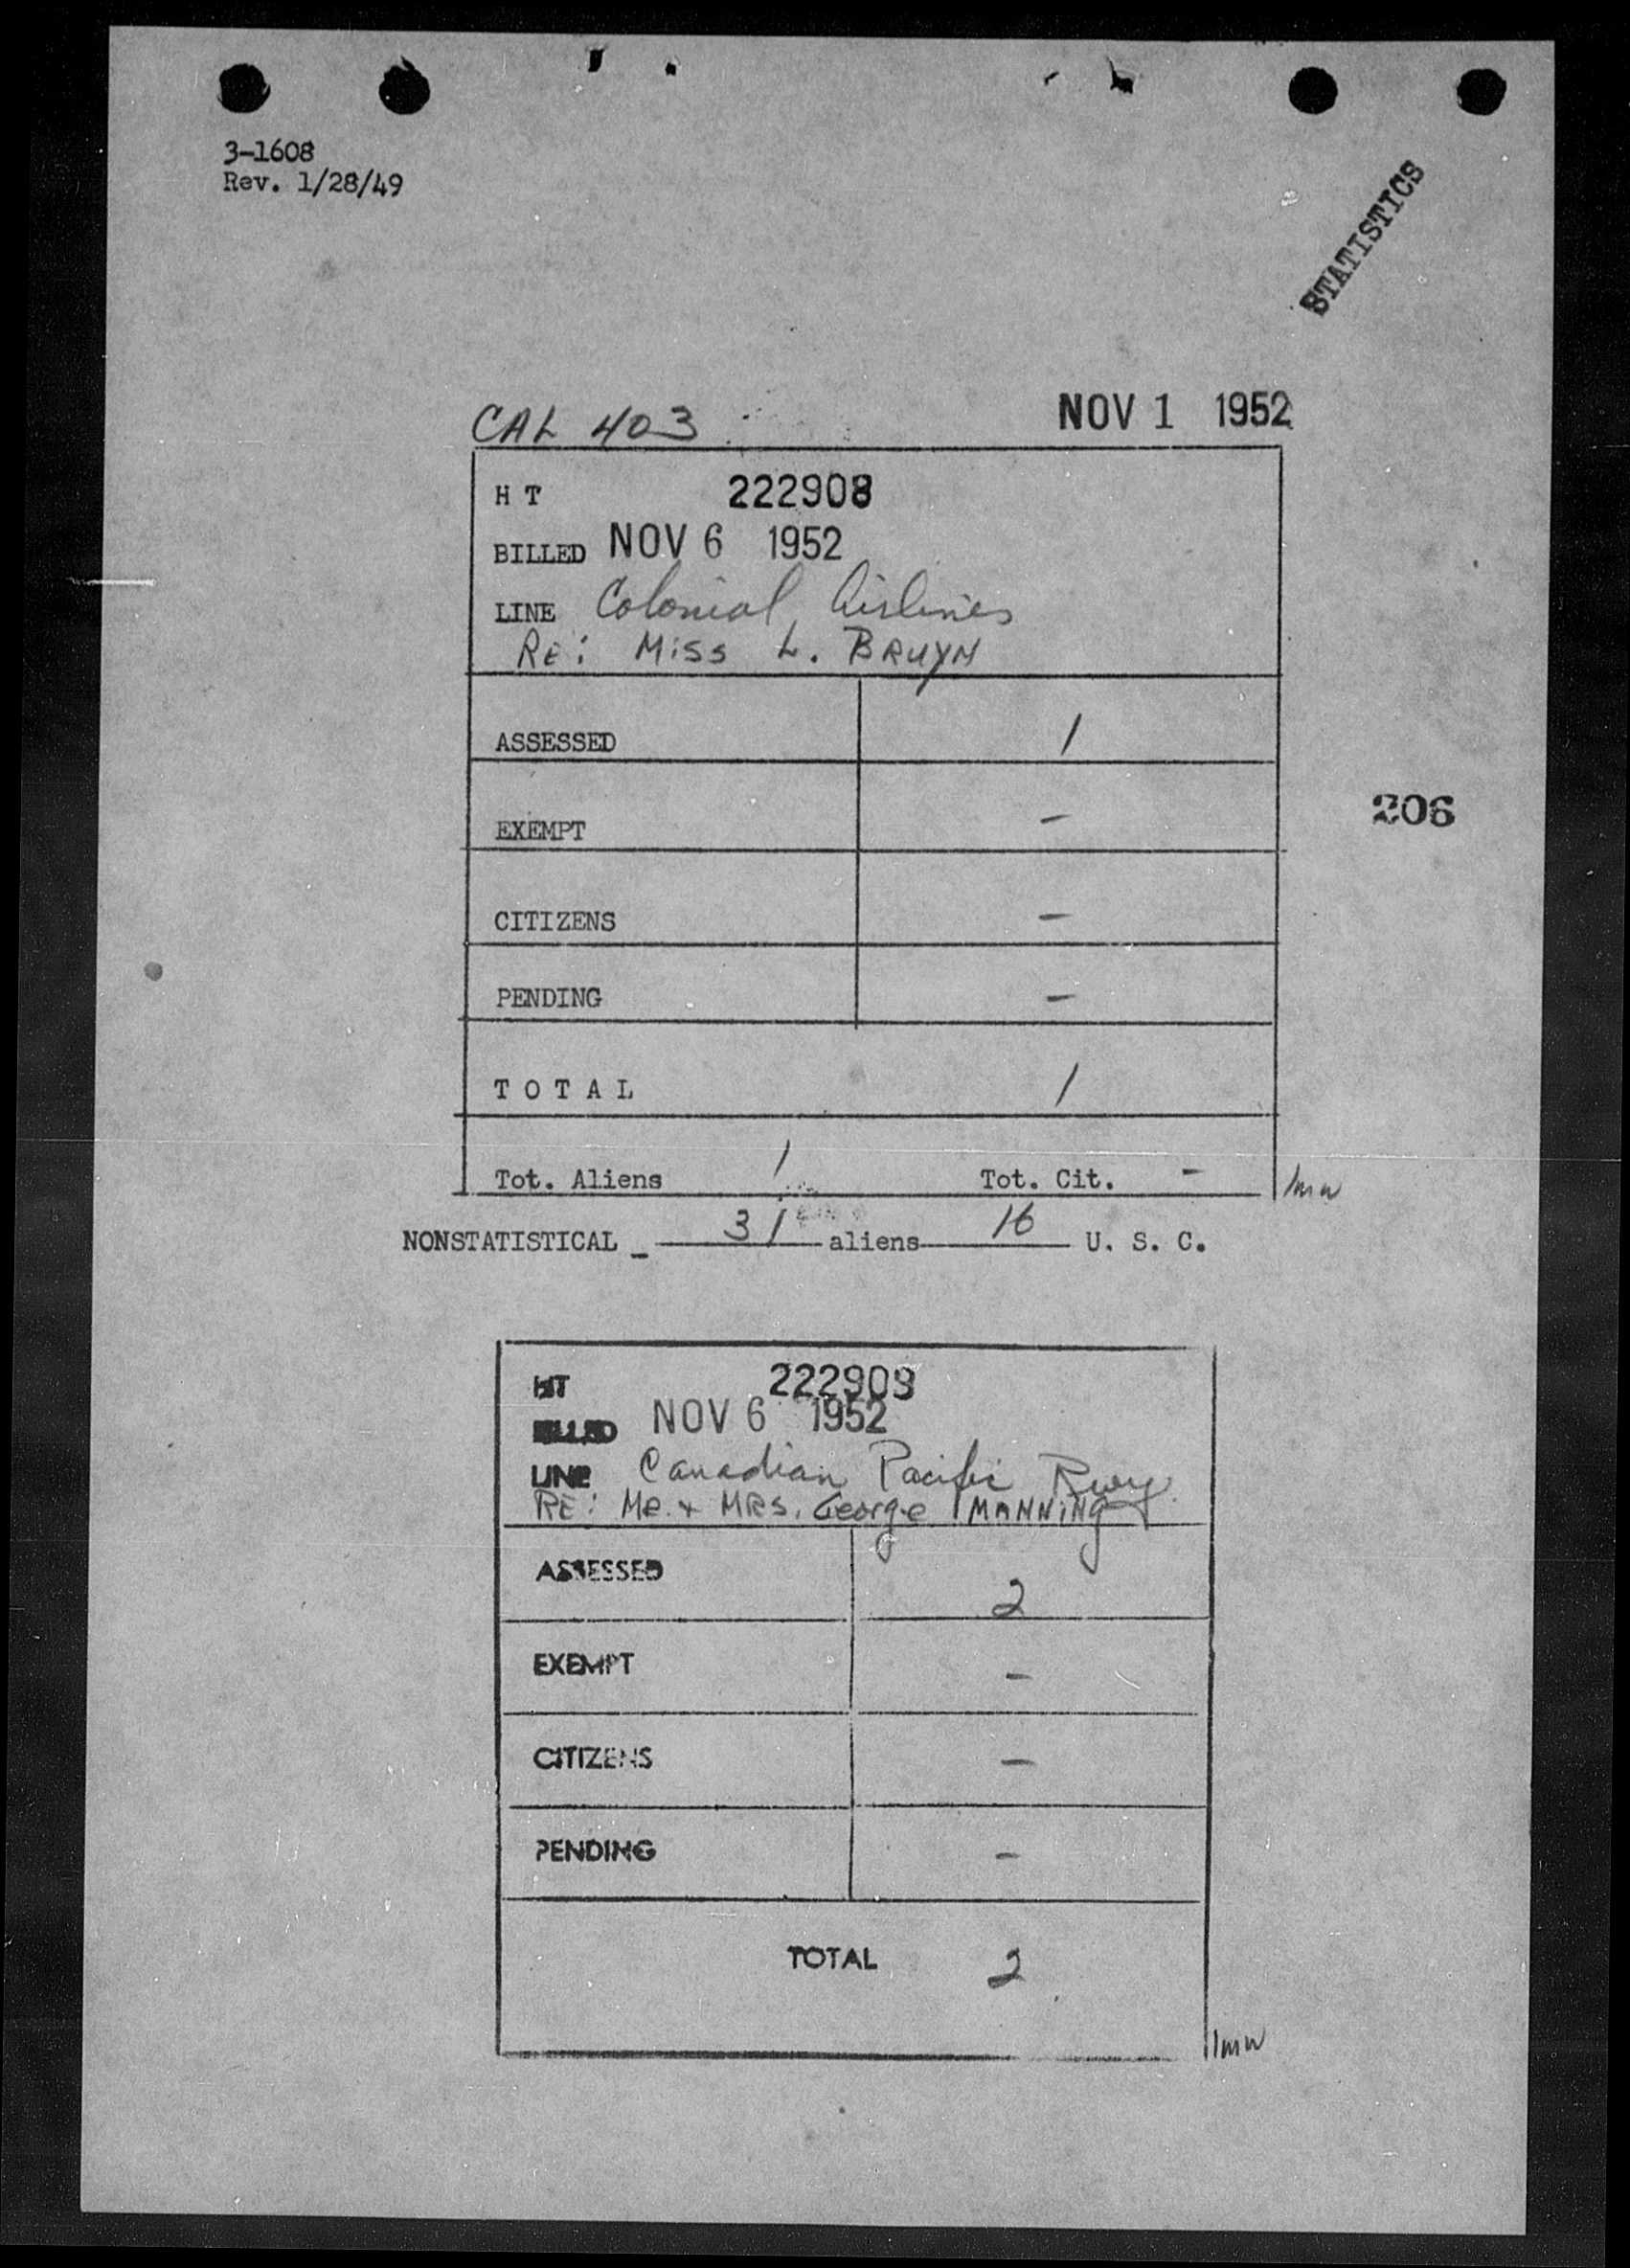 3-1608
Rev. 1/28/49
STATISTICS
CAL 403
NOV 1 1952
H T 222908
BILLED NOV 6 1952
LINE Colonial Airlines
RE: Miss L. BRUYN
ASSESSED 1
EXEMPT -
206
CITIZENS -
PENDING -
T O T A L 1
Tot. Aliens 1 Tot. Cit. -
NONSTATISTICAL - 31 aliens 16 U. S. C.
HT 222909
BILLED NOV 6 1952
LINE Canadian Pacific Rwy.
RE: MR. + MRS. George MANNING
ASSESSED 2
EXEMPT -
CITIZENS -
PENDING -
TOTAL 2